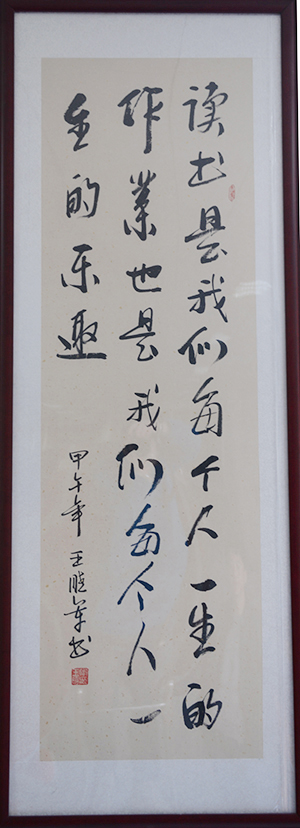 读书是我们每个人一生的
作业也是我们每个人一
生的乐趣
甲午年 王晓军书